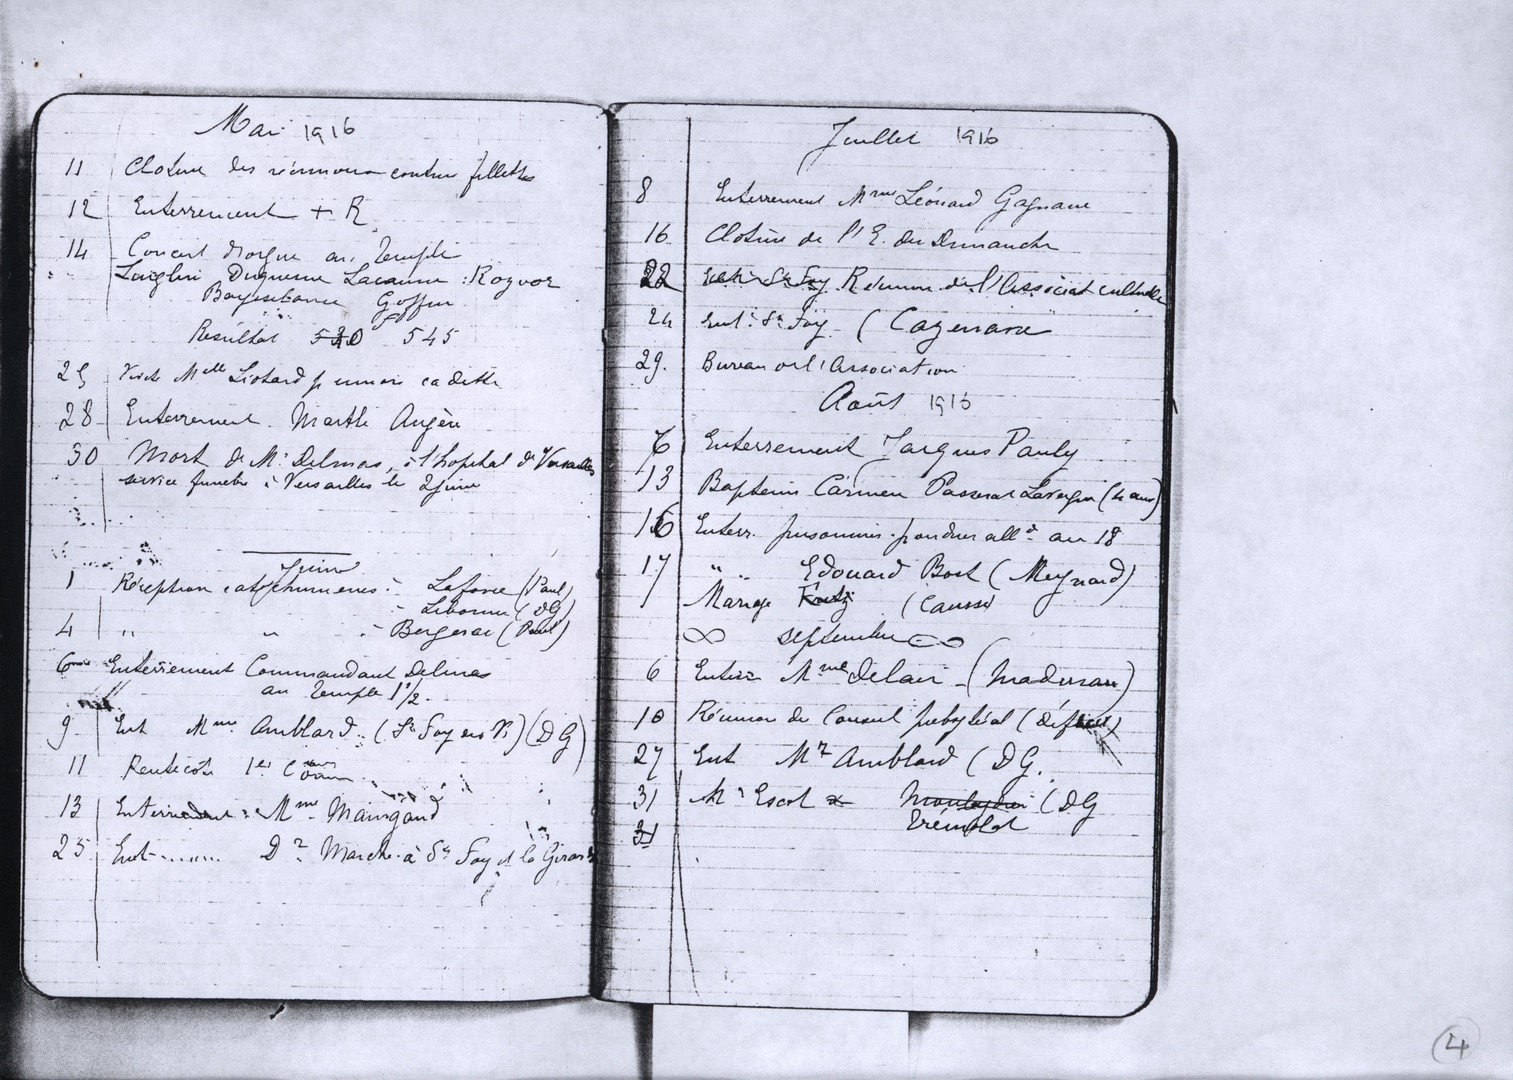 Mai 1916
11 Cloture des réunions couture fillettes
12 Enterrement + R
14 Concert d'orgue au Temple
Duquesne Lacaune Rozvor
Goffin
Résultat 530 545
25 Visite Melle Liotard p unions cadettes
28 Enterrement Marthe Augère
30 Mort de Mr Delmas, à l'hopital de Versailles
service funebre à Versailles le 2 juin
Juin
1 Réception catéchumènes : Laforce (Paul)
- Libourne (DG)
4 " " - Bergerac (Paul)
6 Enterrement Commandant Delmas
au Temple 1h 1/2.
9 Ent Mme Amblard (Ste Foy en Vi) (DG)
11 Pentecôte 1er Comm
13 Enterrement : Mme Maingaud
25 Ent Dr Marche à Ste Foy et la Girarde
Juillet 1916
8 Enterrement Mme Léonard Gagnaire
16 Cloture de l'E. du Dimanche
22 Ent Ste Foy Reunion de l'Associat cultuelle
24 Ent. Ste Foy (Cazenave
29. Bureau de l'Association
Août 1916
6 Enterrement Jacques Pauly
13 Bapteme Carmen Passerat Lavergn (4 ans)
16 Enterr. prisonnier poudrer alld au 18
17 " " Edouard Bost (Meynard)
Mariage Fritz (Causse
∞ septembre ∞
6 Enterr Mme Delair - (Maduran)
10 Réunion de Conseil presbytéral
27 Ent Mr Amblard (DG.
31 Mr Escot x Mouleydier (DG
Trémolat
31
4